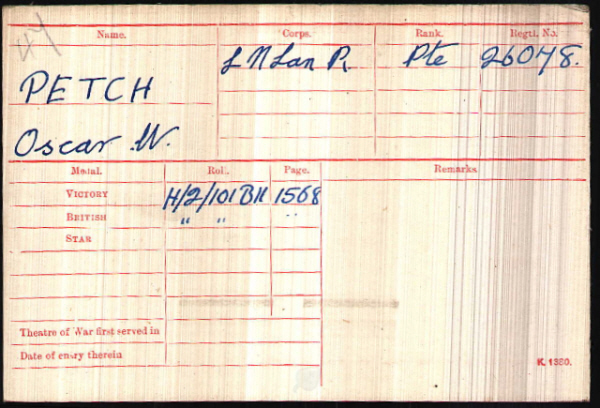 47
Name. Corps. Rank. Regtl. No.
L N Lan R. Pte 26078.
PETCH
Oscar W.
Medal. Roll. Page. Remarks.
VICTORY H/2/101 B11 1568
BRITISH " " "
STAR
Theatre of War first served in
Date of entry therein
K. 1380.